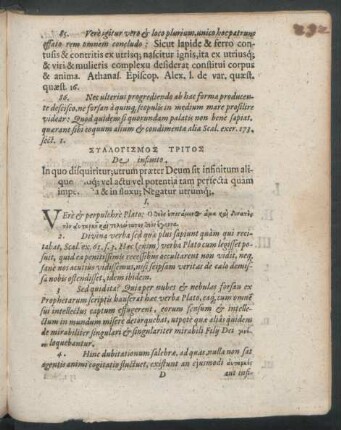 85. Verè igitur vero & loco plurium, unico hoc patrum
effato rem omnem concludo: Sicut lapide & ferro con-
tusis & contritis ex utrisq; nascitur ignis, ita ex utriusq;
& viri & mulieris complexu desiderat constitui corpus
& anima. Athanas. Episcop. Alex. l. de var. quæst.
quæst. 16.
86. Nec ulterius progrediendo ab hac forma producen-
te descisco, ne forsan èquing, scepulis in medium mare prosilire
videar: Quod quidem si quorundam palatis non bene sapiat,
quærant sibi coquum alium & condimenta alia Scal. exer. 173.
sect. 1.
ΣΥΛΟΓΙΣΜΟΣ ΤΡΙΤΟΣ
De infinito.
In quo disquiritur; utrum præter Deum sit infinitum ali-
quo oq; vel actu vel potentia tam perfecta quàm
impe. a & in fluxu; Negatur utrumq;.
I.
VErè & perpulchrè Plato;
2. Divina verba sed quæ plus sapiunt quàm qui reci-
tabat, Scal. ex. 65. s. 3. Hæc (enim) verba Plato cum legisset po-
suit, quid ex penitissimis recessibus occultarent non vidit, neq;
sane nos acutius vidissemus, nisi seipsam veritas de cœlo demis-
sa nobis ostendisset, ibidem.
3. Sed quid ita? Quia per nubes & nebulas forsan ex
Prophetarum scriptis hauserat hæc verba Plato, eaq; cum omnē
fus intellectus captum effugerent, eorum sensum & intelle-
ctum in mundum misere detorquebat, utpote quæ alias quidem
de mirabiliter singulari & singulariter mirabili Filij Dei
loquebantur.
4. Hinc dubitationum salebræ, ad quas, nulla non sat
agentis animi cogitatio fluctuet, existunt an ejusmodi
D aut infi-